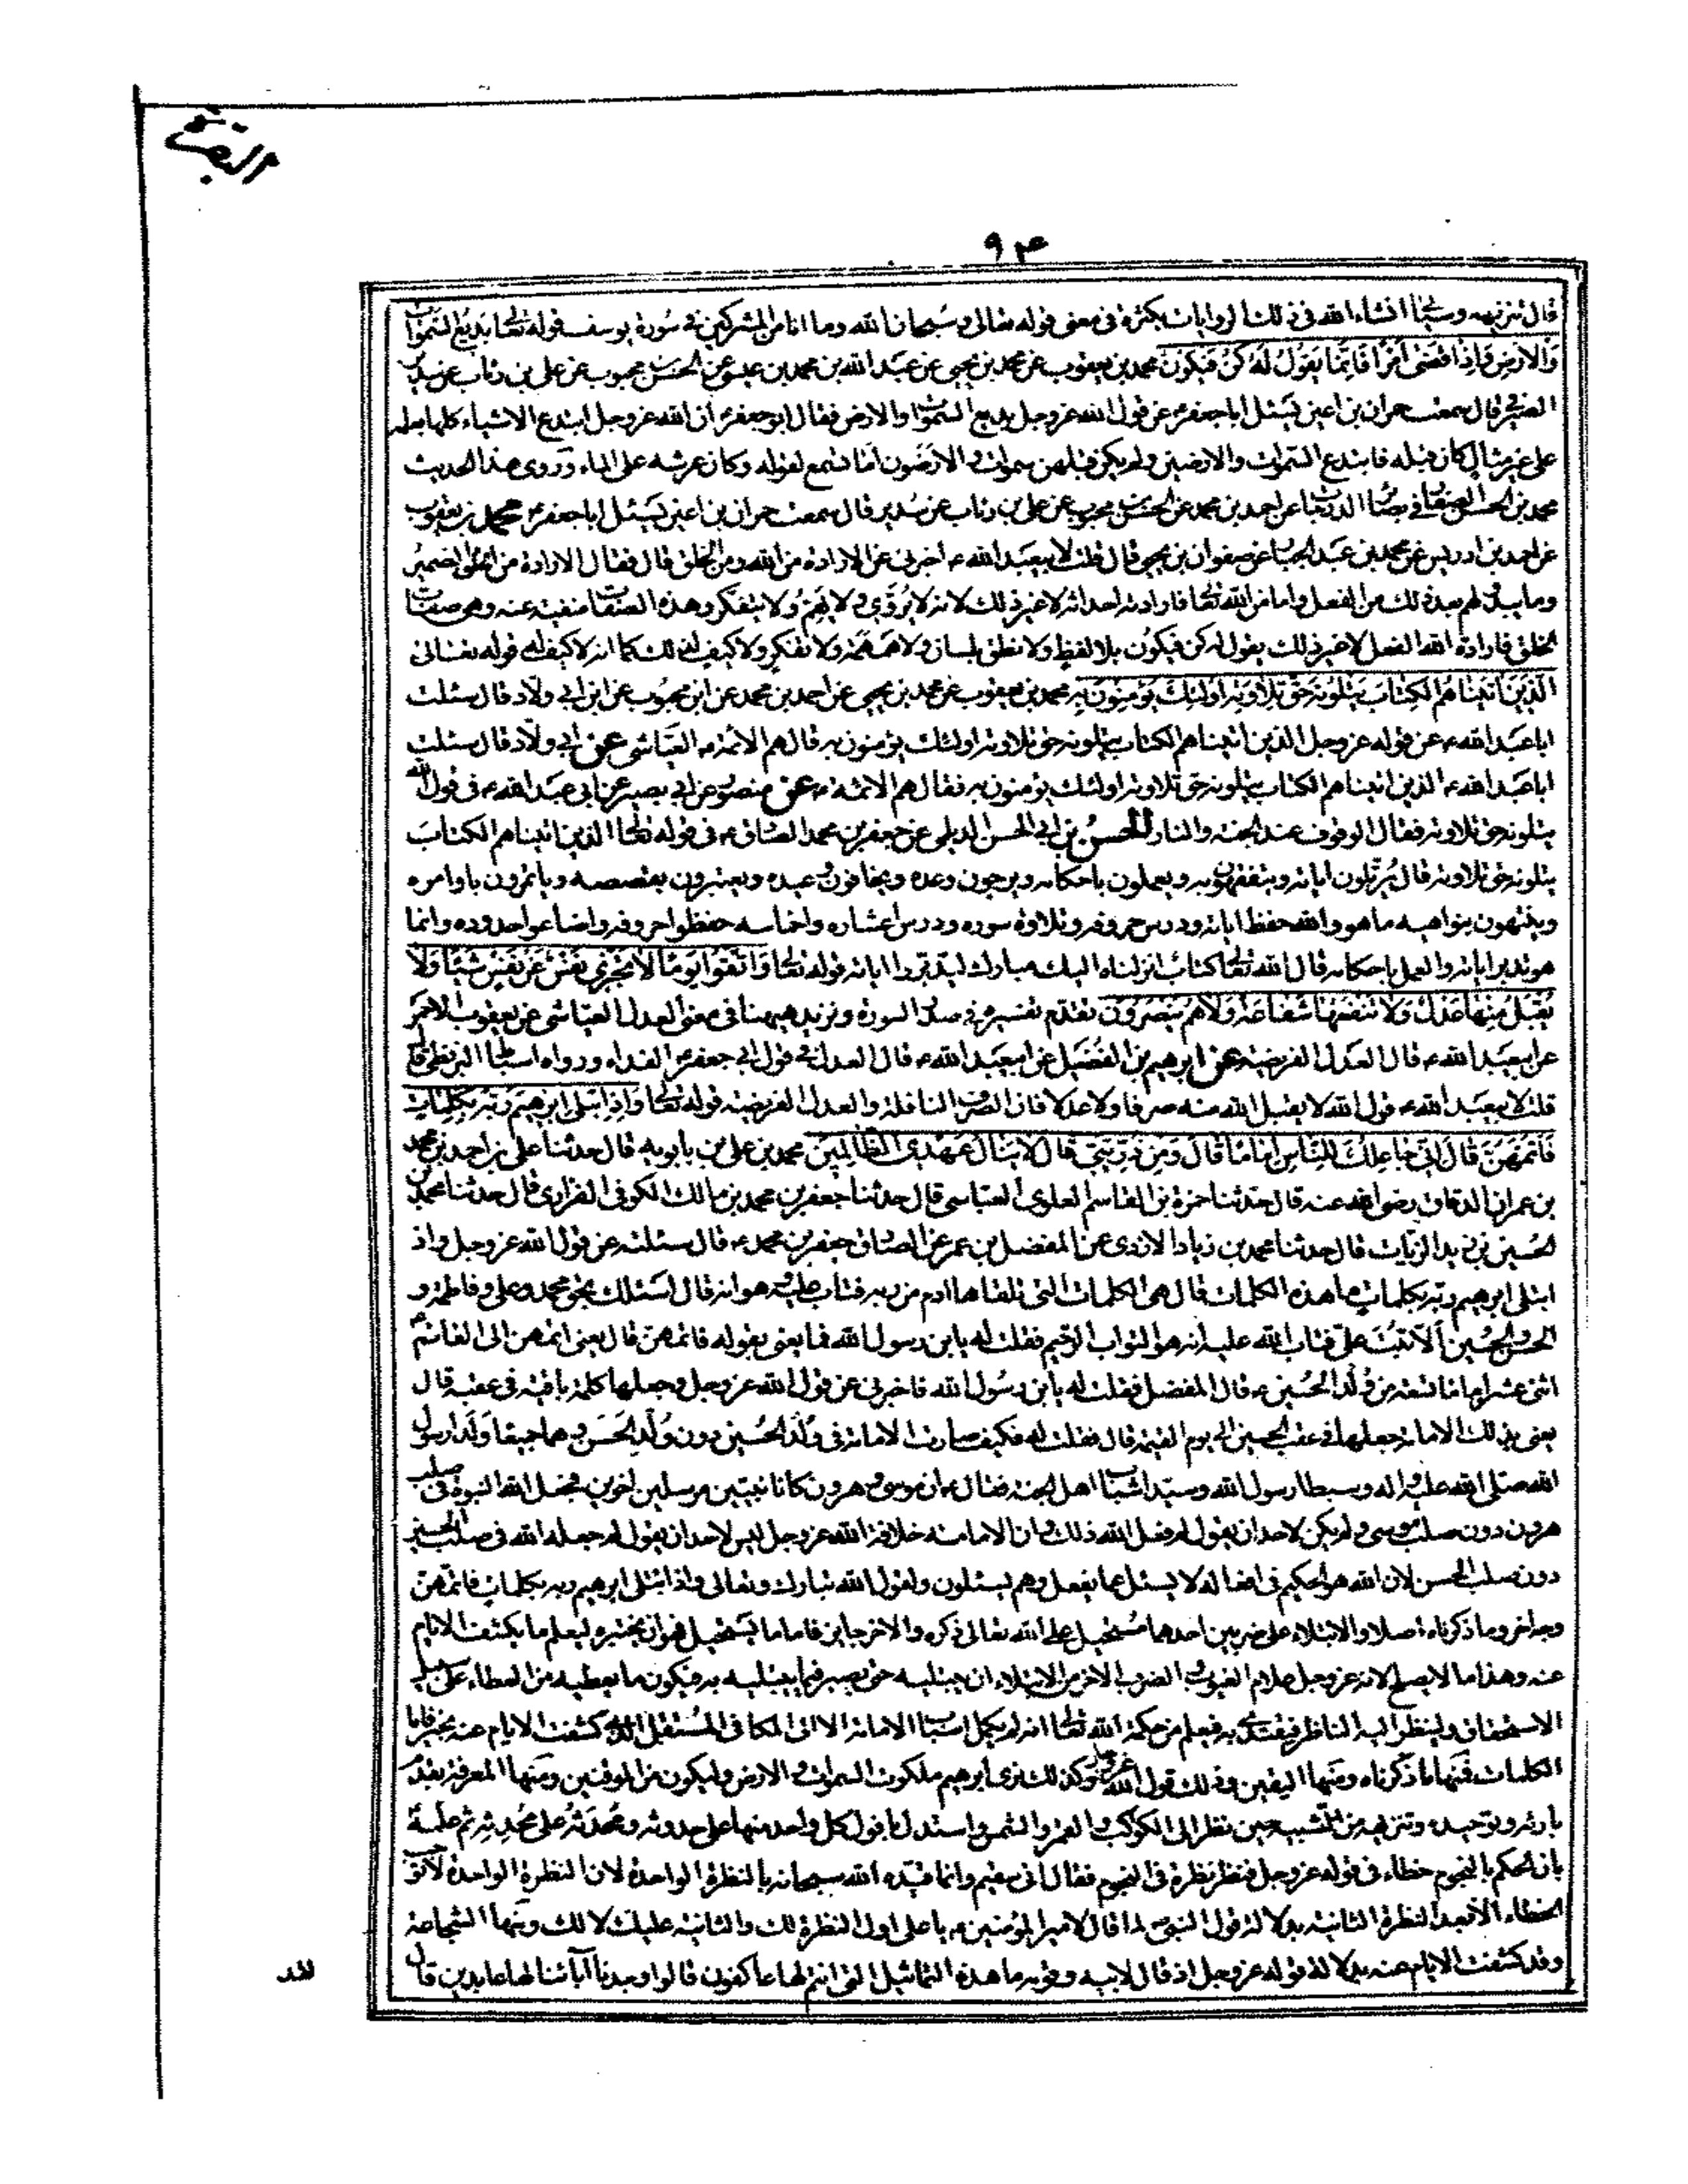 البقرة
٩٤
قال تنزيهه وسيأتى انشاء الله فى ذلك الروايات بكثرة فى معنى قوله تعالى وسبحان الله وما انا من المشركين فى سورة يوسف قوله تعالى بديع السموات
والارض فاذا قضى امرا فانما يقول له كن فيكون محمد بن يعقوب عن محمد بن يحيى عن عبد الله بن محمد بن عيسى عن الحسن بن محبوب عن على بن رئاب عن سدير
الصيرفى قال سمعت حمران بن اعين يسئل ابا جعفر ع عن قول الله عز وجل بديع السموات والارض فقال ابو جعفر ع ان الله عز وجل ابتدع الاشياء كلها بعلمه
على غير مثال كان قبله فابتدع السموات والارضين ولم يكن قبلهن سموات ولا ارضون اما تسمع لقوله وكان عرشه على الماء وروى هذا الحديث
محمد بن الحسن الصفار فى بصائر الدرجات عن احمد بن محمد عن الحسن بن محبوب عن على بن رئاب عن سدير قال سمعت حمران بن اعين يسئل ابا جعفر ع محمد بن يعقوب
عن احمد بن ادريس عن محمد بن عبد الجبار عن صفوان بن يحيى قال قلت لابيعبد الله ع اخبرنى عن الارادة من الله ومن الخلق قال فقال الارادة من الخلق الضمير
وما يبدو لهم بعد ذلك من الفعل واما من الله تعالى فارادته احداثه لا غير ذلك لانه لا يروى ولا يهم ولا يتفكر وهذه الصفات منفية عنه وهى صفات
الخلق فارادة الله الفعل لا غير ذلك يقول له كن فيكون بلا لفظ ولا نطق بلسان ولا همة ولا تفكر ولا كيف لذلك كما انه لا كيف له قوله تعالى
الذين اتيناهم الكتاب يتلونه حق تلاوته اولئك يؤمنون به محمد بن يعقوب عن محمد بن يحيى عن احمد بن محمد عن ابن محبوب عن ابى ولاد قال سئلت
ابا عبد الله ع عن قوله عز وجل الذين اتيناهم الكتاب يتلونه حق تلاوته اولئك يؤمنون به قال هم الائمة ع العياشى عن ابى ولاد قال سئلت
ابا عبد الله ع الذين اتيناهم الكتاب يتلونه حق تلاوته اولئك يؤمنون به فقال هم الائمة ع عن منصور عن ابى بصير عن ابى عبد الله ع فى قول الله
يتلونه حق تلاوته فقال الوقوف عند الجنة والنار الحسن بن ابى الحسن الديلمى عن جعفر بن محمد الصادق ع فى قوله تعالى الذين اتيناهم الكتاب
يتلونه حق تلاوته قال يرتلون اياته ويتفقهون به ويعملون باحكامه ويرجون وعده ويخافون وعيده ويعتبرون بقصصه وياتمرون باوامره
وينتهون بنواهيه ما هو والله حفظ اياته ودرس حروفه وتلاوة سوره ودرس اعشاره واخماسه حفظوا حروفه واضاعوا حدوده وانما
هو تدبر اياته والعمل باحكامه قال الله تعالى كتاب انزلناه اليك مبارك ليدبروا اياته قوله تعالى واتقوا يوما لا تجزى نفس عن نفس شيئا ولا
يقبل منها عدل ولا تنفعها شفاعة ولا هم ينصرون تقدم تفسيره فى صدر السورة ونزيد هيهنا فى معنى العدل العياشى عن يعقوب الاحمر
عن ابيعبد الله ع قال العدل الفريضة عن ابرهيم بن الفضيل عن ابيعبد الله ع قال العدل فى قول ابى جعفر ع الفداء ورواه اسباط الزطى قال
قلت لابيعبد الله ع قول الله لا يقبل الله منه صرفا ولا عدلا قال الصرف النافلة والعدل الفريضة قوله تعالى واذ ابتلى ابرهيم ربه بكلمات
فاتمهن قال انى جاعلك للناس اماما قال ومن ذريتى قال لا ينال عهدى الظالمين محمد بن على بن بابويه قال حدثنا على بن احمد بن محمد
بن عمران الدقاق رضى الله عنه قال حدثنا حمزة بن القاسم العلوى العباسى قال حدثنا جعفر بن محمد بن مالك الكوفى الفزارى قال حدثنا محمد بن
الحسين بن زيد الزيات قال حدثنا محمد بن زياد الازدى عن المفضل بن عمر عن الصادق جعفر بن محمد ع قال سئلته عن قول الله عز وجل واذ
ابتلى ابرهيم ربه بكلمات ما هذه الكلمات قال هى الكلمات التى تلقاها ادم من ربه فتاب عليه وهو انه قال اسئلك بحق محمد وعلى وفاطمة و
الحسن والحسين الا تبت على فتاب الله عليه انه هو التواب الرحيم فقلت له يابن رسول الله فما يعنى بقوله فاتمهن قال يعنى اتمهن الى القائم ع
اثنى عشر اماما تسعة من ولد الحسين ع قال المفضل فقلت له يابن رسول الله فاخبرنى عن قول الله عز وجل وجعلها كلمة باقية فى عقبه قال
يعنى بذلك الامامة جعلها فى عقب الحسين الى يوم القيمة قال فقلت له فكيف صارت الامامة فى ولد الحسين دون ولد الحسن وهما جميعا ولدا رسول
الله صلى الله عليه واله وسبطا رسول الله وسيدا شباب اهل الجنة فقال ع ان موسى وهرون كانا نبيين مرسلين اخوين فجعل الله النبوة فى صلب
هرون دون صلب موسى ولم يكن لاحد ان يقول لم فعل الله ذلك وان الامامة خلافة الله عز وجل ليس لاحد ان يقول لم جعله الله فى صلب الحسين
دون صلب الحسن لان الله هو الحكيم فى افعاله لا يسئل عما يفعل وهم يسئلون ولقول الله تبارك وتعالى واذ ابتلى ابرهيم ربه بكلمات فاتمهن
وجه اخر وما ذكرناه اصله والابتلاء على ضربين احدهما مستحيل على الله تعالى ذكره والاخر جايز فاما ما يستحيل فهو ان يختبره ليعلم ما يكشف الايام
عنه وهذا ما لا يصلح لانه عز وجل علام الغيوب والضرب الاخر من الابتلاء ان يبتليه حتى يصبر فيما يبتليه به فيكون ما يعطيه من العطاء على سبيل
الاستحقاق ولينظر اليه الناظر فيقتدى به فيعلم من حكمة الله تعالى انه لم يكل اسباب الامامة الا الى الكافى المستقل الذى كشفت الايام عنه بخبر فاما
الكلمات فمنها ما ذكرناه ومنها اليقين وذلك قول الله عز وجل وكذلك نرى ابرهيم ملكوت السموات والارض وليكون من الموقنين ومنها المعرفة بقدم
بارئه وتوحيده وتنزيهه عن التشبيه حين نظر الى الكوكب والقمر والشمس واستدل بافول كل واحد منها على حدوثه وبحدثه على محدثه ثم علمه
بان الحكم بالنجوم خطاء فى قوله عز وجل فنظر نظرة فى النجوم فقال انى سقيم وانما قيده الله سبحانه بالنظرة الواحدة لان النظرة الواحدة لا توجب
الخطاء الا بعد النظرة الثانية بدلالة قول النبى ص لما قال لامير المؤمنين ع يا على اول النظرة لك والثانية عليك لا لك ومنها الشجاعة
وقد كشفت الايام عنه بدلالة قوله عز وجل اذ قال لابيه وقومه ما هذه التماثيل التى انتم لها عاكفون قالوا وجدنا آبائنا لها عابدين قال
لقد